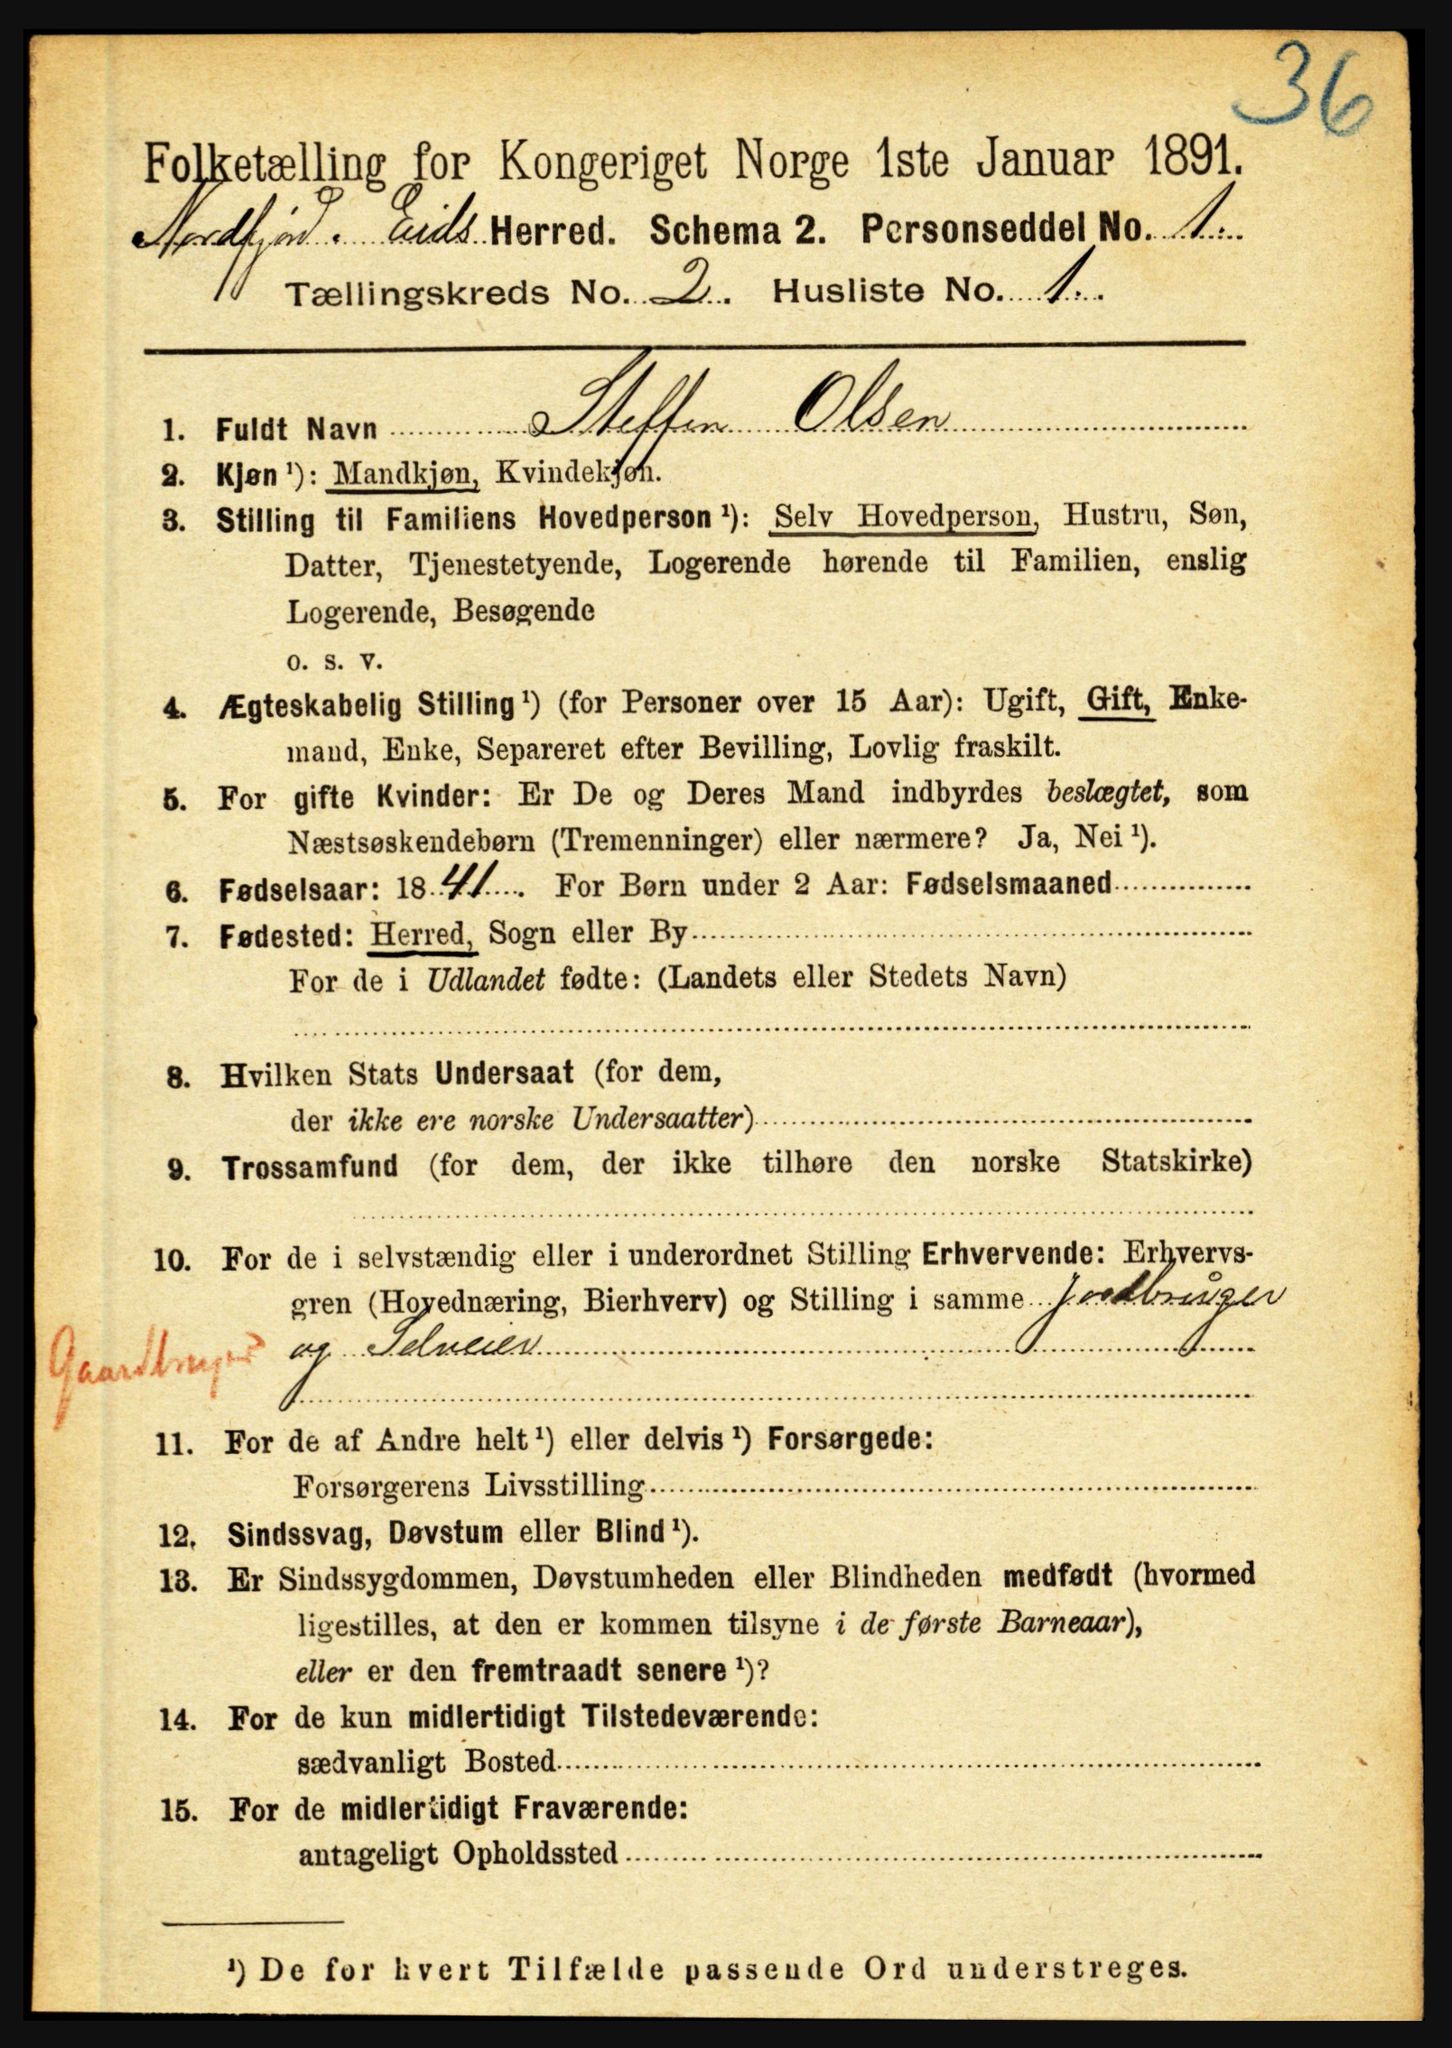 36
Folketælling for Kongeriget Norge 1ste Januar 1891.
Nordfjord. Eids Herred. Schema 2. Personseddel No. 1.
Tællingskreds No. 2. Husliste No. 1.
1. Fuldt Navn Steffen Olsen
2. Kjøn ¹): Mandkjøn, Kvindekjøn.
3. Stilling til Familiens Hovedperson ¹): Selv Hovedperson, Hustru, Søn,
Datter, Tjenestetyende, Logerende hørende til Familien, enslig
Logerende, Besøgende
o. s. v.
4. Ægteskabelig Stilling ¹) (for Personer over 15 Aar): Ugift, Gift, Enke-
mand, Enke, Separeret efter Bevilling, Lovlig fraskilt.
5. For gifte Kvinder: Er De og Deres Mand indbyrdes beslægtet, som
Næstsøskendebørn (Tremenninger) eller nærmere? Ja, Nei ¹).
6. Fødselsaar: 1841. For Børn under 2 Aar: Fødselsmaaned
7. Fødested: Herred, Sogn eller By
For de i Udlandet fødte: (Landets eller Stedets Navn)
8. Hvilken Stats Undersaat (for dem,
der ikke ere norske Undersaatter)
9. Trossamfund (for dem, der ikke tilhøre den norske Statskirke)
10. For de i selvstændig eller i underordnet Stilling Erhvervende: Erhvervs-
gren (Hovednæring, Bierhverv) og Stilling i samme Jordbruger
Gaardbruger og Selveier
11. For de af Andre helt ¹) eller delvis ¹) Forsørgede:
Forsørgerens Livsstilling
12. Sindssvag, Døvstum eller Blind ¹).
13. Er Sindssygdommen, Døvstumheden eller Blindheden medfødt (hvormed
ligestilles, at den er kommen tilsyne i de første Barneaar),
eller er den fremtraadt senere ¹)?
14. For de kun midlertidigt Tilstedeværende:
sædvanligt Bosted
15. For de midlertidigt Fraværende:
antageligt Opholdssted
¹) De for hvert Tilfælde passende Ord understreges.